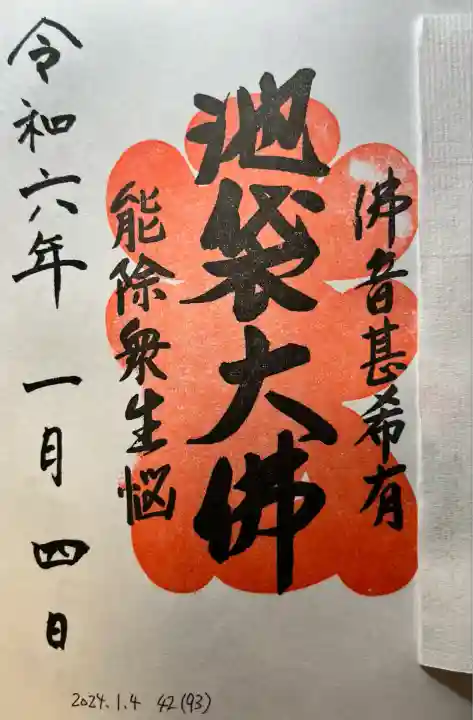 佛音甚希有
池袋大佛
能除衆生悩
令和六年 一月 四日
2024.1.4 42(93)